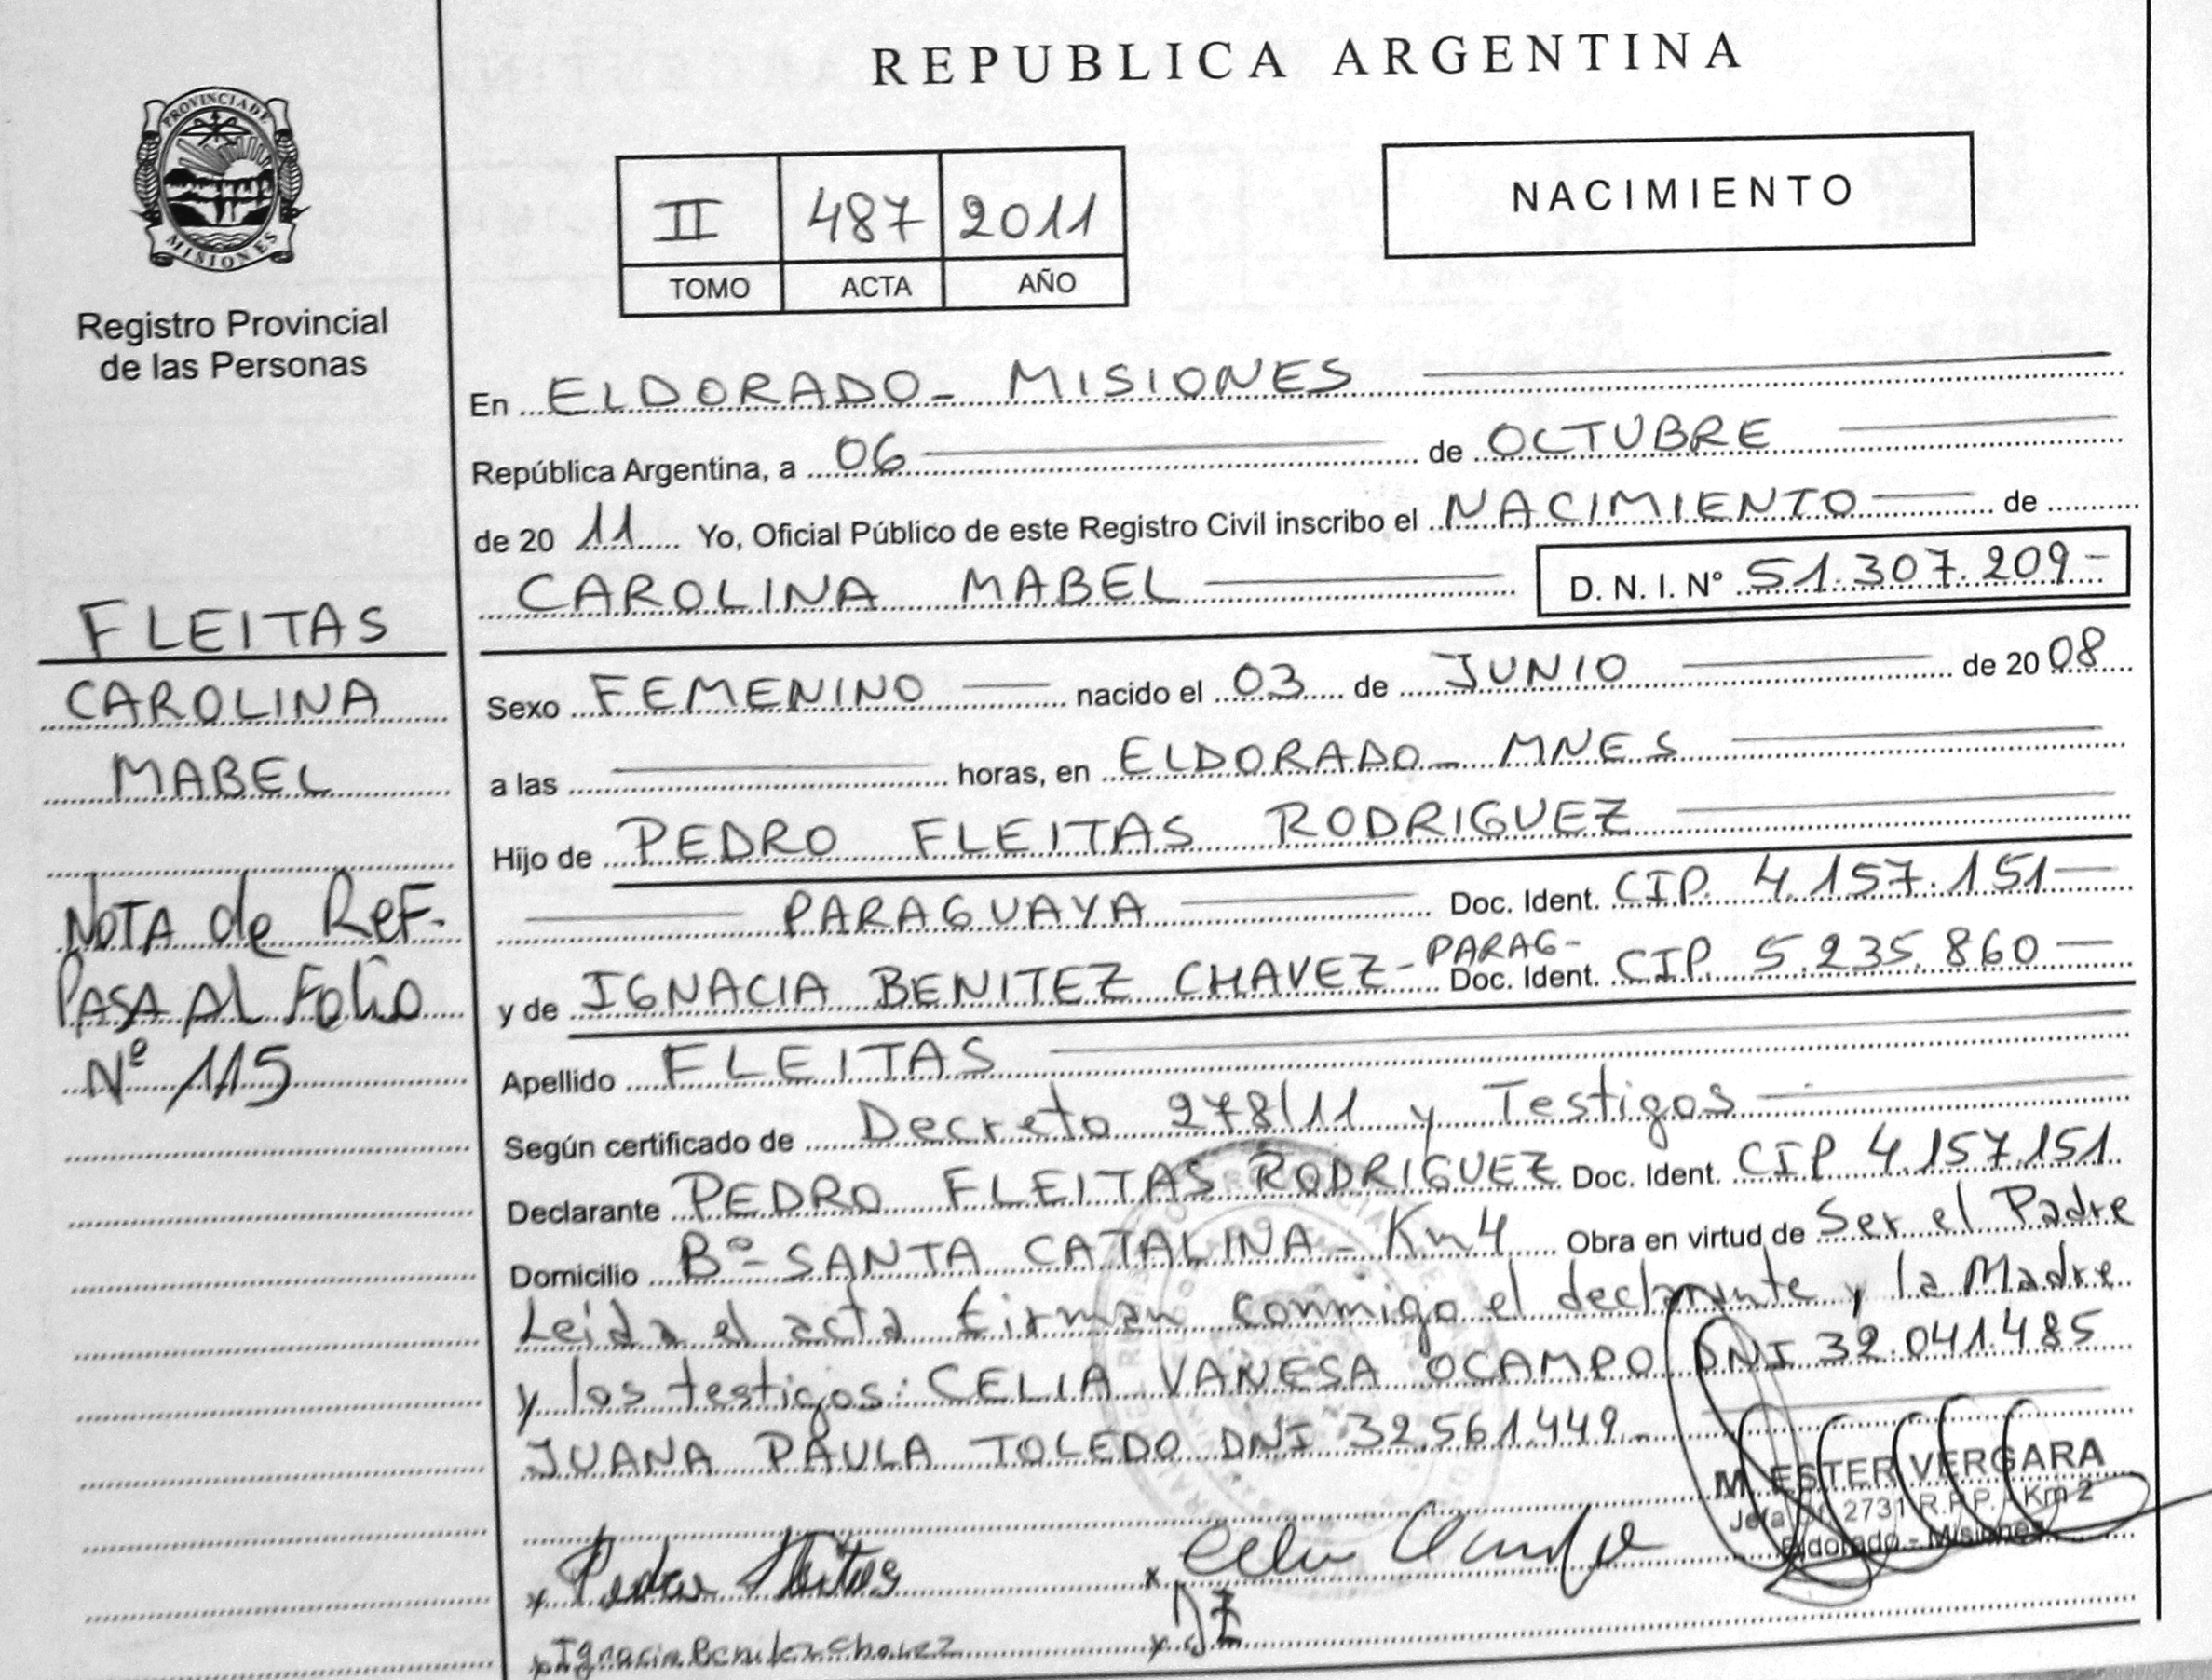 REPUBLICA ARGENTINA
PROVINCIA DE
MISIONES
Registro Provincial
de las Personas
II 487 2011
TOMO ACTA AÑO
NACIMIENTO
En ELDORADO - MISIONES
República Argentina, a 06 de OCTUBRE
de 20 11 Yo, Oficial Público de este Registro Civil inscribo el NACIMIENTO de
CAROLINA MABEL D. N. I. N° 51.307.209-
FLEITAS
CAROLINA
MABEL
NOTA de ReF.
PASA Al Folio
Nº 115
Sexo FEMENINO nacido el 03 de JUNIO de 20 08
a las horas, en ELDORADO - MNES
Hijo de PEDRO FLEITAS RODRIGUEZ
PARAGUAYA Doc. Ident. CIP. 4.157.151
y de IGNACIA BENITEZ CHAVEZ - PARAG- Doc. Ident. CIP. 5.235.860
Apellido FLEITAS
Según certificado de Decreto 278/11 y Testigos
Declarante PEDRO FLEITAS RODRIGUEZ Doc. Ident. CIP 4.157.151
Domicilio Bº - SANTA CATALINA - Km 4 Obra en virtud de Ser el Padre
Leida el acta firman conmigo el declarante y la Madre
y los testigos: CELIA VANESA OCAMPO DNI 32.041.485
JUANA PAULA TOLEDO DNI 32.561.449-
M. ESTER VERGARA
Jefa 2731 R.P.P. Km 2
Eldorado - Misiones
x Pedro Fleitas
x Celia
x Ignacia Benitez Chavez
x